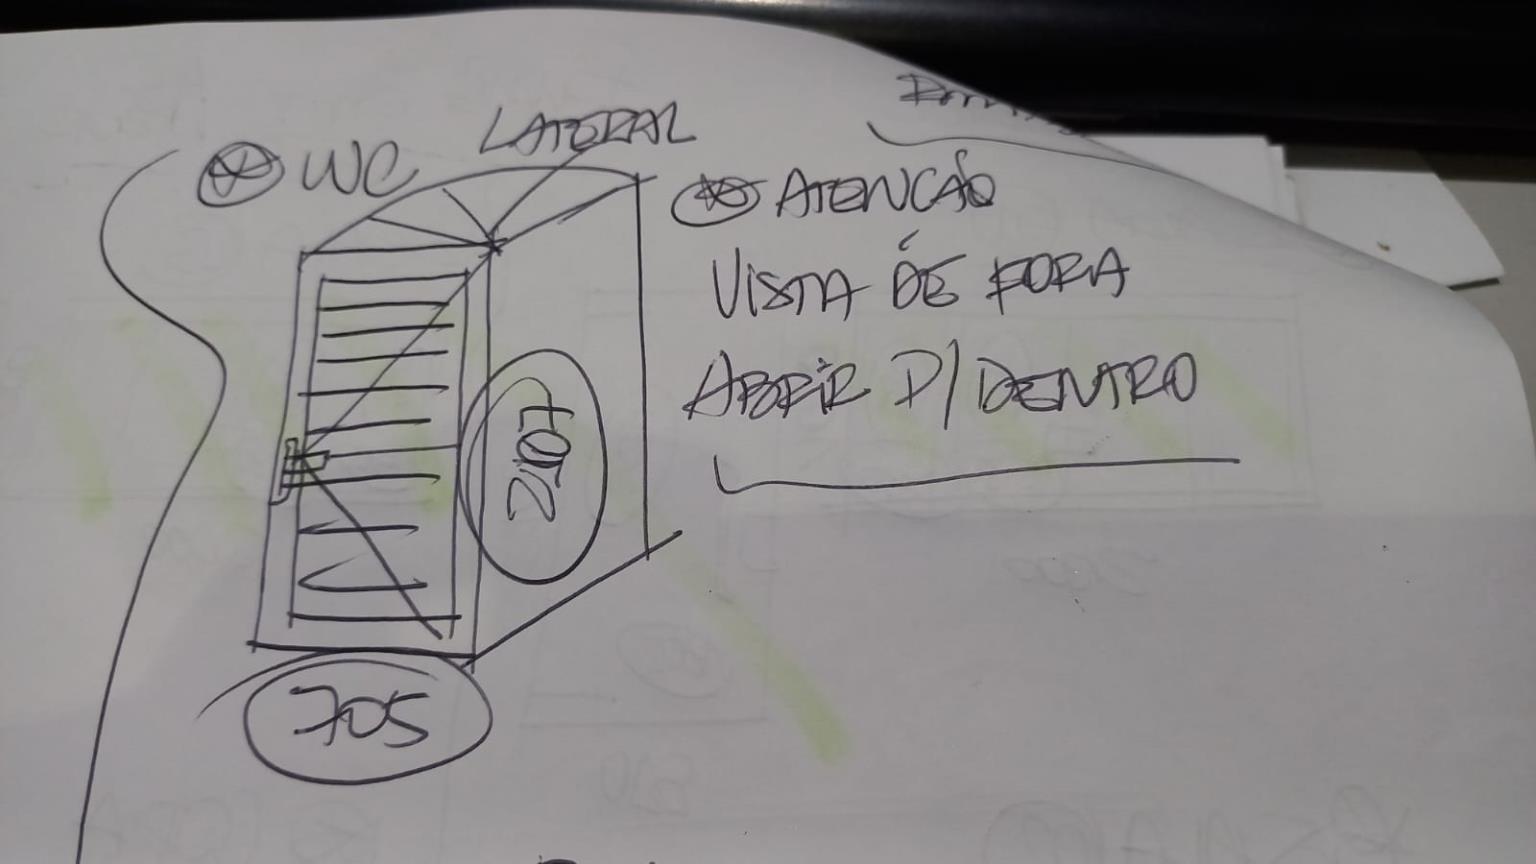 WC
LATERAL
ATENCÃO
VISTA DE FORA
ABRIR P/DENTRO
2107
705